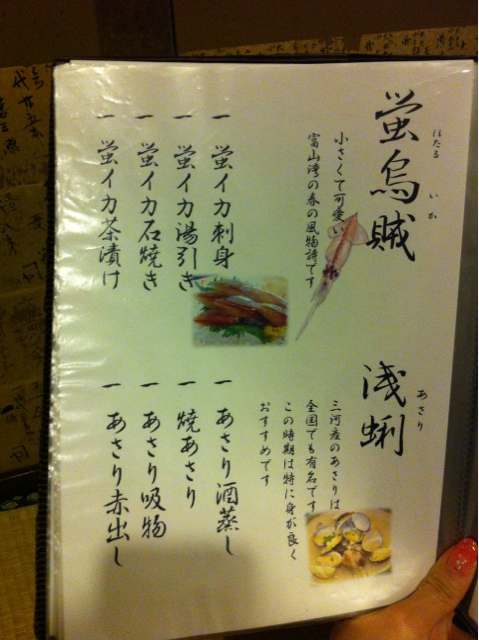 蛍烏賊
ほたる いか
小さくて可愛い
富山湾の春の風物詩です
一 蛍イカ刺身
一 蛍イカ湯引き
一 蛍イカ石焼き
一 蛍イカ茶漬け
浅蜊
あさり
三河産のあさりは
全国でも有名です
この時期は特に身が良く
おすすめです
一 あさり酒蒸し
一 焼あさり
一 あさり吸物
一 あさり赤出し